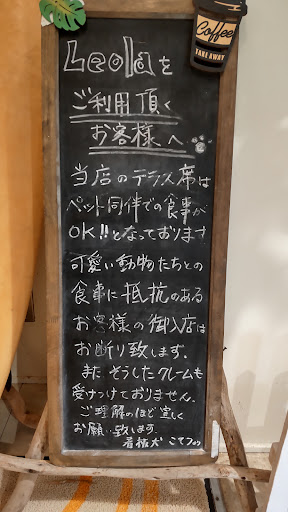 Coffee
TAKE AWAY
Leolaを
ご利用頂く
お客様へ
当店のテラス席は
ペット同伴での食事が
OK!!となっております
可愛い動物たちとの
食事に抵抗のある
お客様の御入店は
お断り致します.
また そうしたクレームも
受けつけておりません.
ご理解のほど宜しく
お願い致します.
看板犬 こてつ